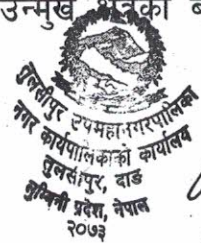 उन्मुख क्षेत्रको
तुलसीपुर उपमहानगरपालिका
नगर कार्यपालिकाको कार्यालय
तुलसीपुर, दाङ
लुम्बिनी प्रदेश, नेपाल
२०७३